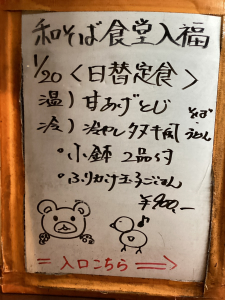 和そば食堂入福
1/20 <日替定食>
温) 甘あげとじ
冷) 冷やしタヌキ風 そば・うどん
・小鉢 2品付
・ふりかけ玉子ごはん
¥900,-
= 入口こちら ⇒